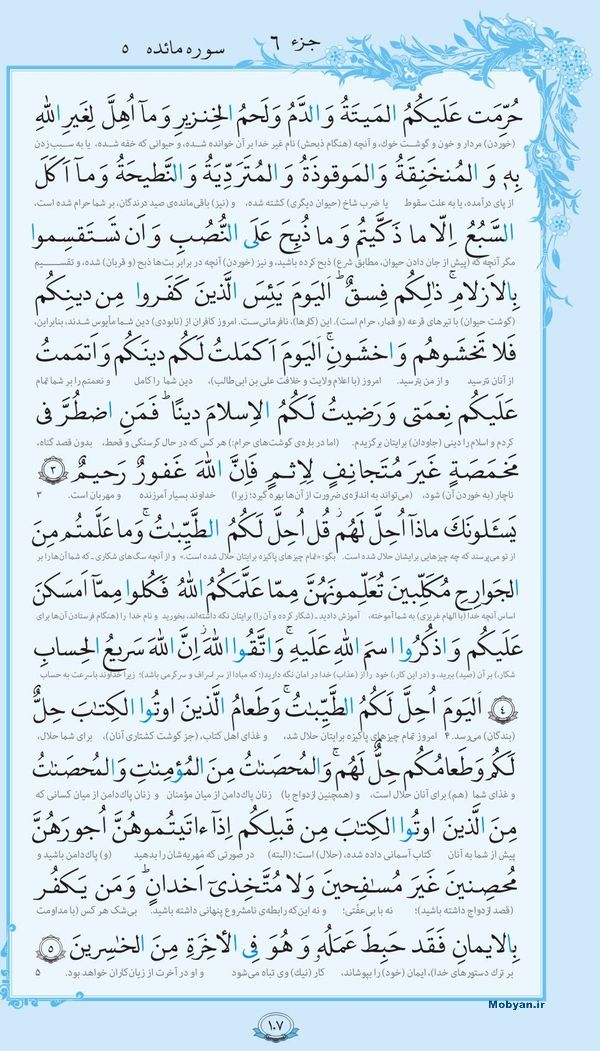 جزء ٦
سوره مائده ٥
حُرِّمَت عَلَيكُمُ المَيتَةُ وَ الدَّمُ وَ لَحمُ الخِنزيرِ وَ مآ اُهِلَّ لِغَيرِ اللهِ
(خوردن) مردار و خون و گوشت خوك، و آنچه (هنگام ذبحش) نام غیر خدا بر آن خوانده شده، و حیوانی که خفه شده، یا به سبب زدن
بِهٖ وَ المُنخَنِقَةُ وَ المَوقوذَةُ وَ المُتَرَدِّيَةُ وَ النَّطيحَةُ وَ مآ اَكَلَ
از پای درآمده، یا به علت سقوط یا ضرب شاخ (حیوان دیگری) کشته شده، و (نیز) باقی‌مانده‌ی صید درندگان، بر شما حرام شده است،
السَّبُعُ اِلّا ما ذَكَّيتُم وَ ما ذُبِحَ عَلَى النُّصُبِ وَ اَن تَستَقسِموا
مگر آنچه که (پیش از جان دادن حیوان، مطابق شرع) ذبح کرده باشید، و نیز (خوردن) آنچه در برابر بت‌ها ذبح (و قربان) شده، و تقسیم
بِالاَزلامِ ۚ ذٰلِكُم فِسقٌ ۗ اَليَومَ يَئِسَ الَّذينَ كَفَروا مِن دينِكُم
(گوشت حیوان) با تیرهای قرعه (و قمار، حرام است). این (کارها)، نافرمانی‌ست. امروز کافران از (نابودی) دین شما مأیوس شدند، بنابراین،
فَلا تَخشَوهُم وَ اخشَونِ ۚ اَليَومَ اَكمَلتُ لَكُم دينَكُم وَ اَتمَمتُ
از آنان نترسید و از من بترسید. امروز (با اعلام ولایت و خلافت علی بن ابی‌طالب)، دین شما را کامل و نعمتم را بر شما تمام
عَلَيكُم نِعمَتى وَ رَضيتُ لَكُمُ الاِسلامَ دينًا ۚ فَمَنِ اضطُرَّ فى
کردم و اسلام را دینی (جاودان) برایتان برگزیدم. (اما در باره‌ی گوشت‌های حرام:) هر کس که در حال گرسنگی و قحط، بدون قصد گناه،
مَخمَصَةٍ غَيرَ مُتَجانِفٍ لِاِثمٍ فَاِنَّ اللهَ غَفورٌ رَحيمٌ ٣
ناچار (به خوردن آن) شود، (می‌تواند به اندازه‌ی ضرورت از آن‌ها بهره گیرد؛ زیرا) خداوند بسیار آمرزنده و مهربان است. ٣
يَسـَٔلونَكَ ماذآ اُحِلَّ لَهُم ۖ قُل اُحِلَّ لَكُمُ الطَّيِّبٰتُ ۙ وَ ما عَلَّمتُم مِنَ
از تو می‌پرسند که چه چیزهایی برایشان حلال شده است. بگو: «تمام چیزهای پاکیزه برایتان حلال شده است.» و از آنچه سگ‌های شکاری ـ که شما آن‌ها را بر
الجَوارِحِ مُكَلِّبينَ تُعَلِّمونَهُنَّ مِمّا عَلَّمَكُمُ اللهُ ۖ فَكُلوا مِمّآ اَمسَكنَ
اساس آنچه خدا (با الهام غریزی) به شما آموخته، آموزش دادید ـ (شکار کرده و آن را) برایتان نگه داشته‌اند، بخورید و نام خدا را (هنگام فرستادن آن‌ها برای
عَلَيكُم وَ اذكُرُوا اسمَ اللهِ عَلَيهِ ۖ وَ اتَّقُوا اللهَ ۚ اِنَّ اللهَ سَريعُ الحِسابِ
شکار،) بر آن (صید) ببرید، و (در این کار)، خود را از (عذاب) خدا در امان نگه دارید؛ (که مبادا از سر اسراف و سرگرمی باشد)؛ زیرا خداوند باسرعت به حساب
٤ اَليَومَ اُحِلَّ لَكُمُ الطَّيِّبٰتُ ۖ وَ طَعامُ الَّذينَ اوتُوا الكِتٰبَ حِلٌّ
(بندگان) می‌رسد. ۴ امروز تمام چیزهای پاکیزه برایتان حلال شد، و غذای اهل کتاب، (جز گوشت کشتاری آنان)، برای شما حلال،
لَكُم وَ طَعامُكُم حِلٌّ لَهُم ۖ وَ المُحصَنٰتُ مِنَ المُؤمِنٰتِ وَ المُحصَنٰتُ
و غذای شما (هم) برای آنان حلال است، و (همچنین ازدواج با) زنان پاک‌دامن از میان مؤمنان و زنان پاک‌دامن از میان کسانی که
مِنَ الَّذينَ اوتُوا الكِتٰبَ مِن قَبلِكُم اِذآ ءاتَيتُموهُنَّ اُجورَهُنَّ
پیش از شما به آنان کتاب آسمانی داده شده، (حلال) است؛ (البته) در صورتی که مهریه‌شان را بدهید (و) پاک‌دامن باشید و
مُحصِنينَ غَيرَ مُسٰفِحينَ وَ لا مُتَّخِذى اَخدانٍ ۗ وَ مَن يَكفُر
(قصد ازدواج داشته باشید)؛ نه با بی‌عفّتی؛ و نه این‌که رابطه‌ی نامشروع پنهانی داشته باشید. بی‌شک هر کس (با مداومت
بِالايمانِ فَقَد حَبِطَ عَمَلُهٗ وَ هُوَ فِى الأخِرَةِ مِنَ الخٰسِرينَ ٥
بر ترک دستورهای خدا)، ایمان (خود) را بپوشاند، کار (نیك) وی تباه می‌شود و او در آخرت از زیان‌کاران خواهد بود. ٥
Mobyan.ir
١٠٧